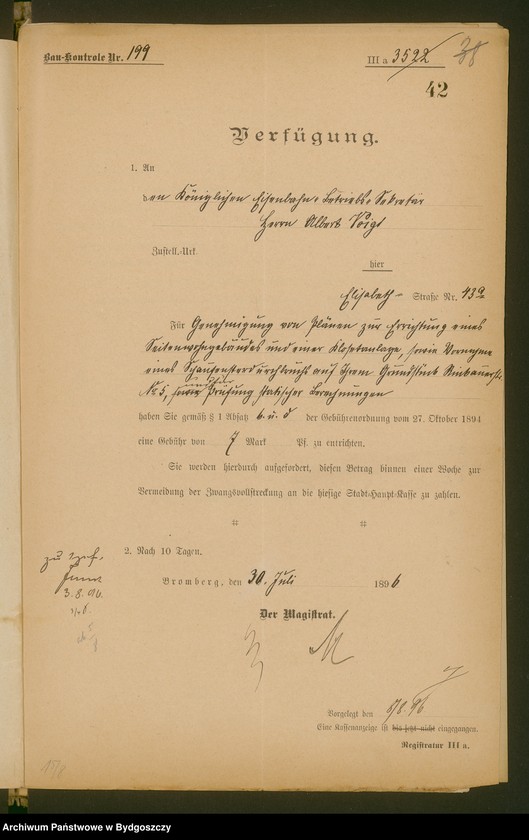 Bau-Kontrole Nr. 199
III a 3522
38
42
Verfügung.
1. An
den Königlichen Eisenbahn-Betriebs-Sekretär
Herrn Albert Voigt
Zustell.-Urk.
hier
Elisabeth- Straße Nr. 43a
Für Genehmigung von Plänen zur Errichtung eines
Seitenwohngebäudes und einer Klosetanlage, sowie Vornahme
eines Schaufensterdurchbruchs auf Ihrem Grundstück
No 5, und für Prüfung statischer Berechnungen
haben Sie gemäß § 1 Absatz b. u. d der Gebührenordnung vom 27. Oktober 1894
eine Gebühr von 7 Mark Pf. zu entrichten.
Sie werden hierdurch aufgefordert, diesen Betrag binnen einer Woche zur
Vermeidung der Zwangsvollstreckung an die hiesige Stadt-Haupt-Kasse zu zahlen.
2. Nach 10 Tagen.
zu
3.8.96.
Bromberg, den 30. Juli 1896
Der Magistrat.
Vorgelegt den 8/8 96
Eine Kassenanzeige ist bis jetzt nicht eingegangen.
Registratur III a.
15/8
Archiwum Państwowe w Bydgoszczy